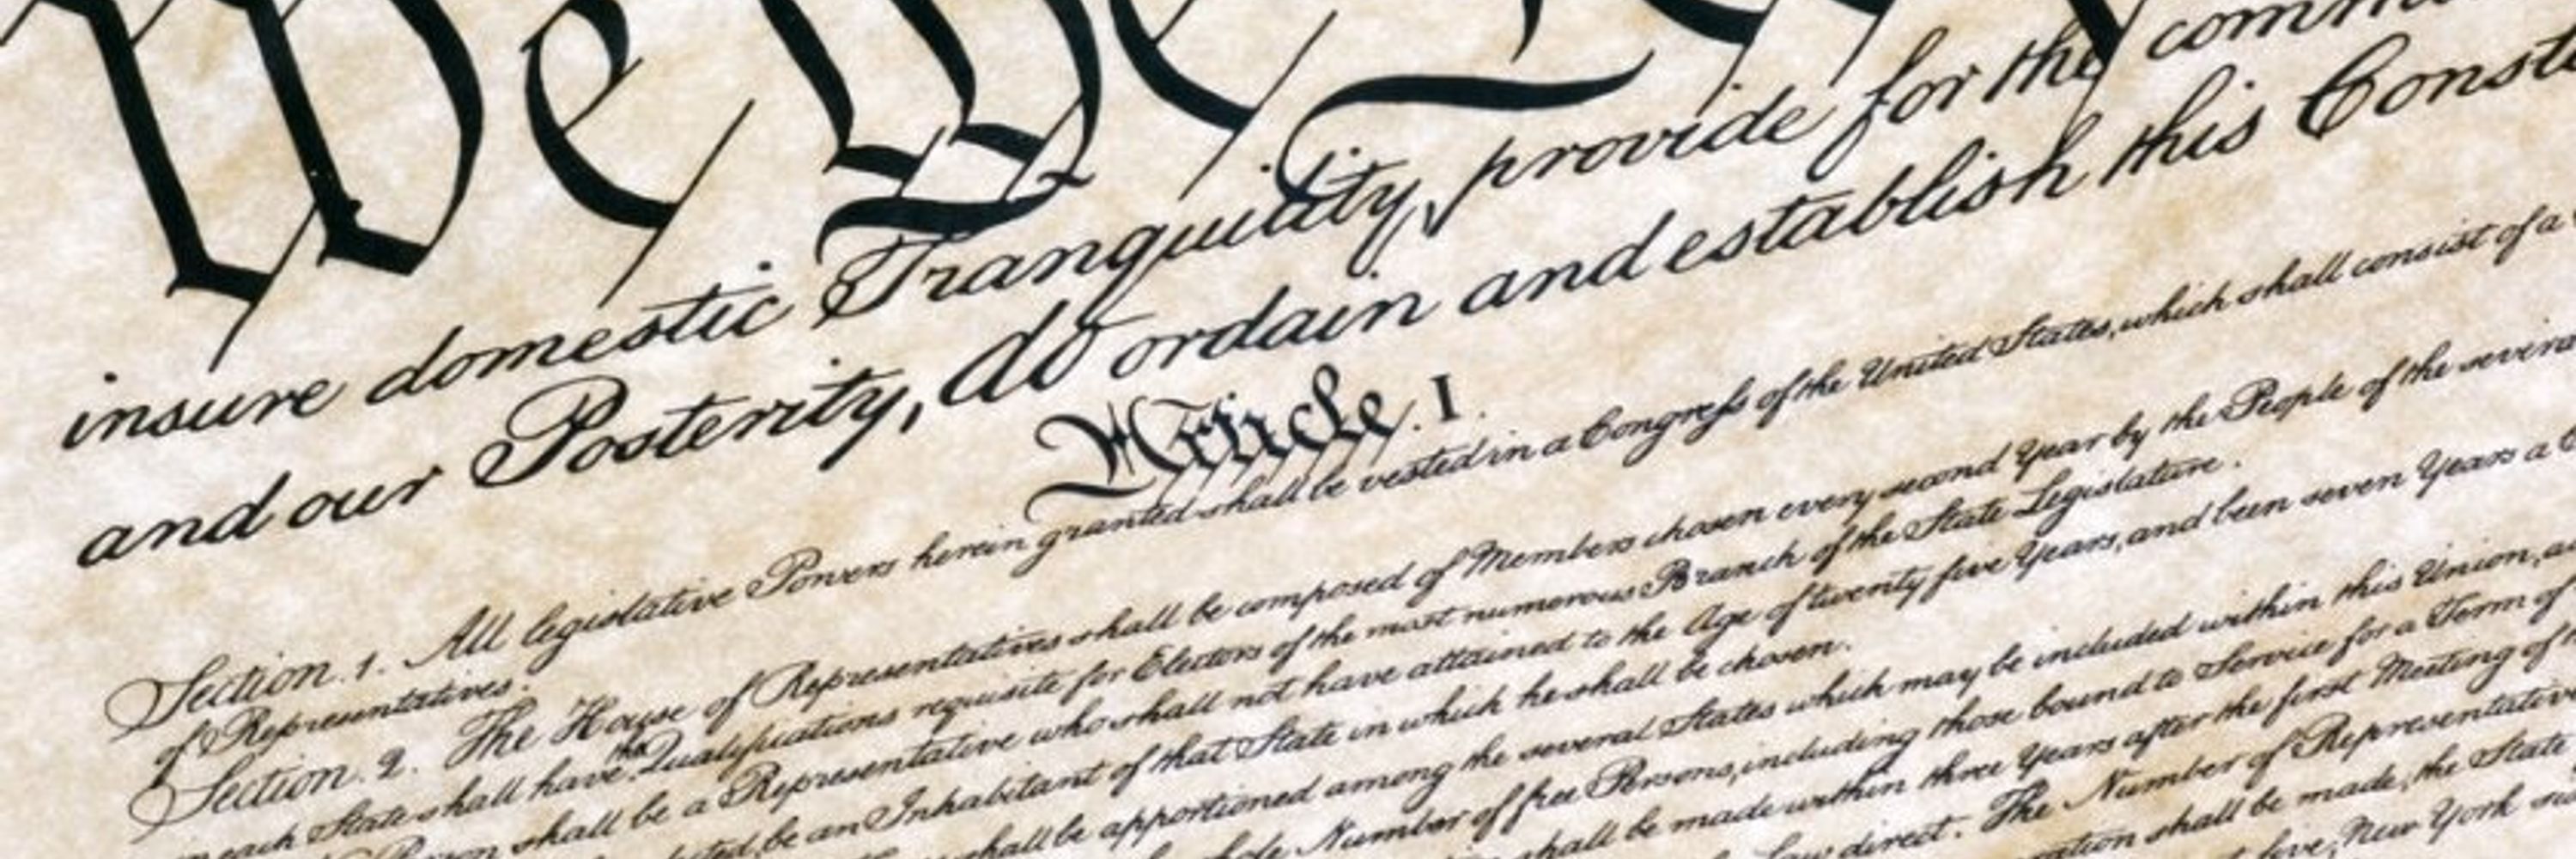 We the Peop
insure domestic Tranquility, provide for the comm
and our Posterity, do ordain and establish this Const
Article. I.
Section. 1. All legislative Powers herein granted shall be vested in a Congress of the United States, which shall consist of a
of Representatives.
Section. 2. The House of Representatives shall be composed of Members chosen every second Year by the People of the severa
each State shall have the Qualifications requisite for Electors of the most numerous Branch of the State Legislature.
shall be a Representative who shall not have attained to the Age of twenty five Years, and been seven Years a C
be an Inhabitant of that State in which he shall be chosen.
shall be apportioned among the several States which may be included within this Union, a
Number of free Persons, including those bound to Service for a Term of
shall be made within three Years after the first Meeting of
Law direct. The Number of Representative
shall be made, the State
New York